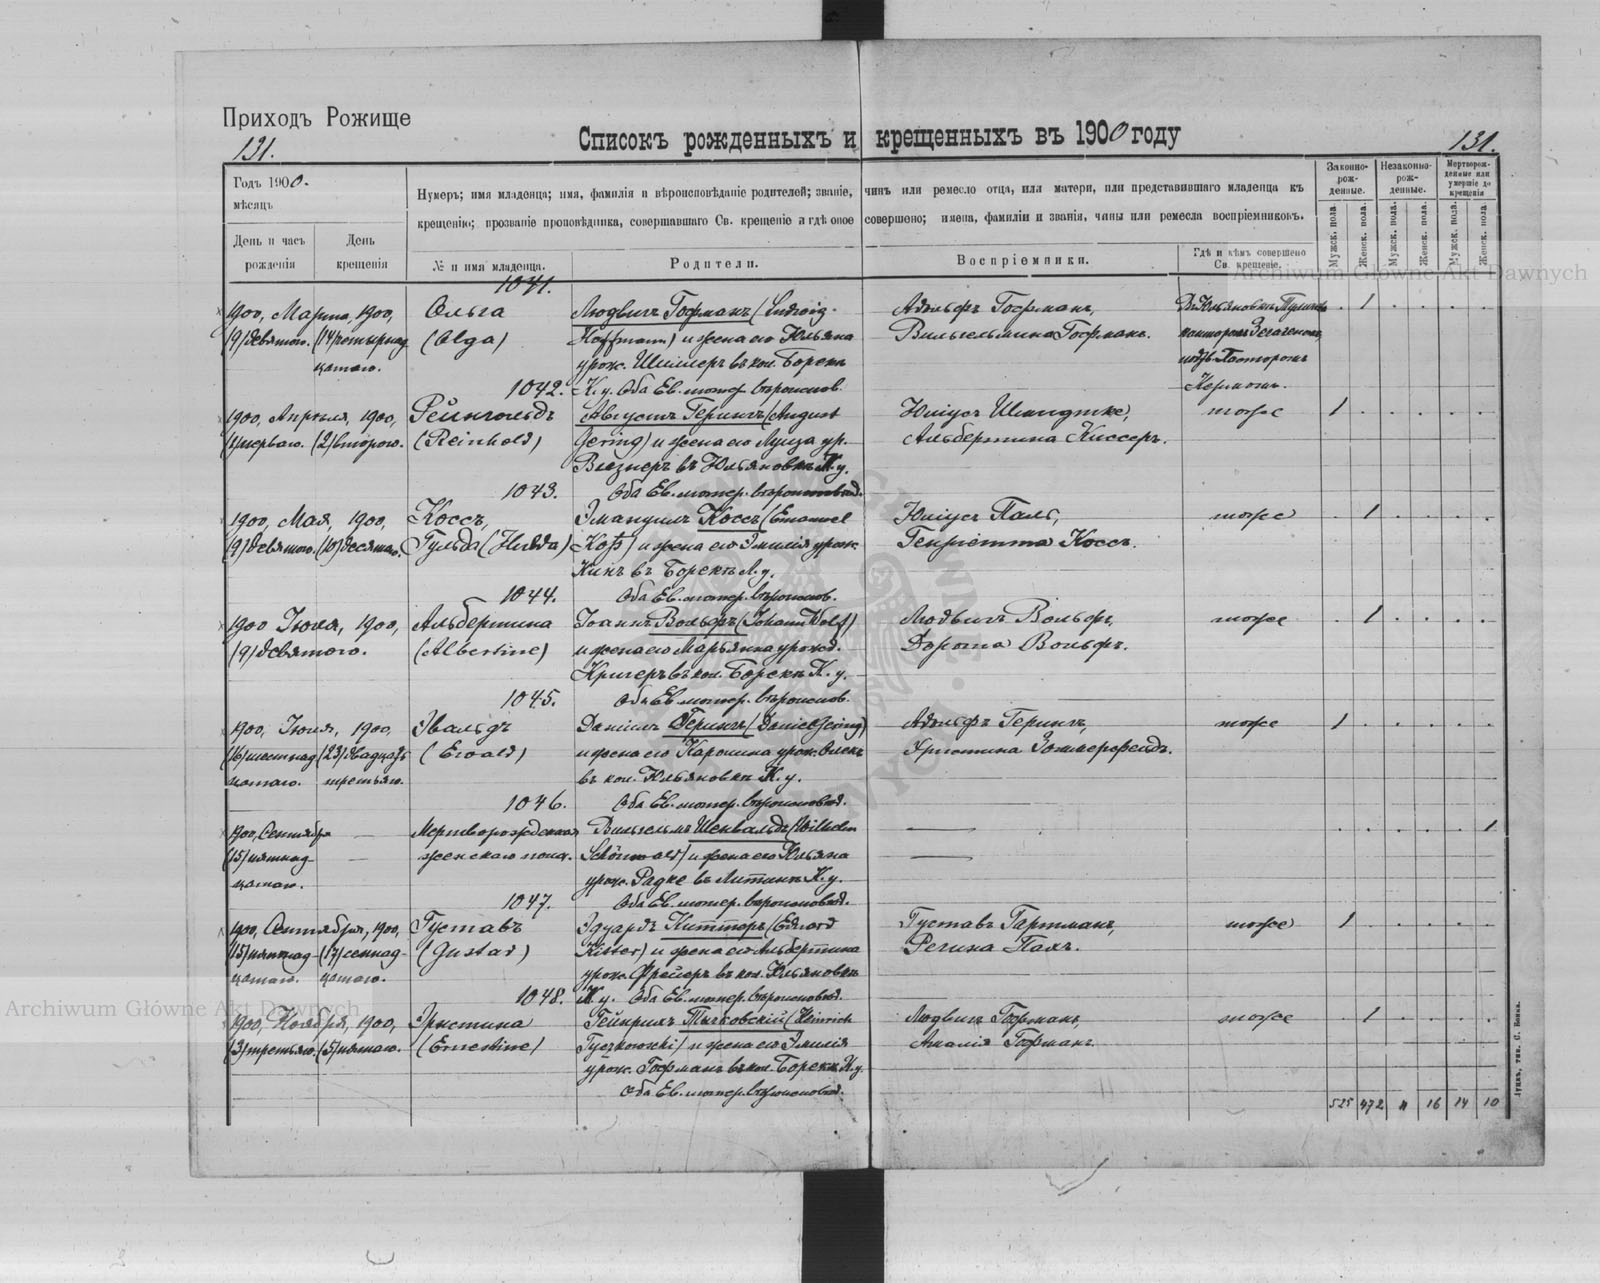 Приходъ Рожище
131.
Списокъ рожденныхъ и крещенныхъ въ 1900 году
131.
Годъ 1900.
мѣсяцъ
День и часъ
рожденія
День
крещенія
Нумеръ; имя младенца; имя, фамилія и вѣроисповѣданіе родителей; званіе, чинъ или ремесло отца, или матери, или представившаго младенца къ
крещенію; прозваніе проповѣдника, совершавшаго Св. крещеніе и гдѣ оное совершено; имена, фамиліи и званія, чины или ремесла воспріемниковъ.
№ и имя младенца.
Родители.
Воспріемники.
Гдѣ и кѣмъ совершено
Св. крещеніе.
Законно-
рож-
денные.
Незаконно-
рож-
денные.
Мертворож-
денные или
умершіе до
крещенія
Мужск. пола.
Женск. пола.
Мужск. пола.
Женск. пола.
Мужск. пола.
Женск. пола.
1041.
1900, Марта, 1900,
(9) девятого. (14) четырнад
цатаго.
Ольга
(Olga)
Людвигъ Гофманъ (Ludwig
Hoffmann) и жена его Юльяна
урож. Шиллеръ въ кол. Борекъ
К. у. Оба Ев. лютер. вѣроисповѣд.
Адольфъ Гофманъ,
Вильгельмина Гофманъ.
1
1042.
1900, Апрѣля, 1900,
(1) перваго. (2) второго.
Рейнгольдъ
(Reinhold)
Августъ Герингъ (August
Gering) и жена его Луиза ур.
въ Юльяновкѣ К. у.
Оба Ев. лютер. вѣроисповѣд.
Юліусъ
Альбертина Киссеръ.
тоже
1
1043.
1900, Мая, 1900,
(9) девятого. (10) десятаго.
Коссъ,
Гульда (Hulda)
Эмануилъ Коссъ (Emanuel
Koß) и жена его Эмилія урож.
въ Борекѣ Л. у.
Оба Ев. лютер. вѣроисповѣд.
Юліусъ
Генріетта Коссъ.
тоже
1
1044.
1900 Іюля, 1900,
(9) девятого.
Альбертина
(Albertine)
Іоаннъ Вольфъ (Johann Wolf)
и жена его Марьянна урожд.
Кригеръ въ кол. Борекъ К. у.
Оба Ев. лютер. вѣроисповѣд.
Людвигъ Вольфъ,
Дорота Вольфъ.
тоже
1
1045.
1900, Іюля, 1900,
(16) шестнад (23) двадцать
цатаго. третьяго.
Эвальдъ
(Ewald)
Даніилъ Герингъ (Daniel Gering)
и жена его Каролина урож.
въ кол. Юльяновкѣ К. у.
Оба Ев. лютер. вѣроисповѣд.
Адольфъ Герингъ,
Христина Зоммерфельдъ.
тоже
1
1046.
1900, Сентября
(15) пятнад-
цатаго.
Мертворожденная
женскаго пола.
Вильгельмъ Шенвальдъ (Wilhelm
Schönwald) и жена его Юльяна
урож. Радке въ К. у.
Оба Ев. лютер. вѣроисповѣд.
1
1047.
1900, Сентября, 1900,
(15) пятнад- (17) семнад-
цатаго. цатаго.
Густавъ
(Gustav)
Эдуардъ Киттеръ (Eduard
Kitter) и жена его Альбертина
урож. Фрейеръ въ кол. Юльяновкѣ
К. у. Оба Ев. лютер. вѣроисповѣд.
Густавъ Гартманъ,
Регина
тоже
1
1048.
1900, Ноября, 1900,
(3) третьяго. (5) пятаго.
Эрнстина
(Ernestine)
Гейнрихъ (Heinrich
и жена его Эмилія
урож. Гофманъ въ кол. Борекъ К. у.
Оба Ев. лютер. вѣроисповѣд.
Людвигъ Гофманъ,
Амалія Гофманъ.
тоже
1
525 472 11 16 14 10
Луцкъ, тип. С. Бонка.
Archiwum Główne Akt Dawnych
Archiwum Główne Akt Dawnych